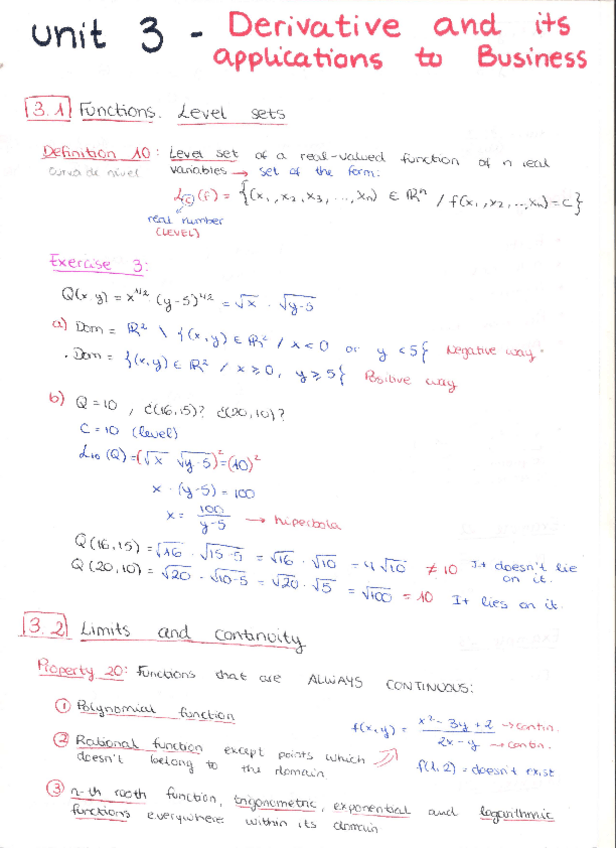 Unit 3 - Derivative and its
applications to Business
3.1 Functions. Level sets
Definition 10: Level set of a real-valued function of n real
Curva de nivel
variables → set of the form:
L(c)(f) = {(x₁, x₂, x₃, ..., xn) ∈ ℝⁿ / f(x₁, x₂, ..., xn) = c}
real number
(LEVEL)
Exercise 3:
Q(x,y) = x^1/2 · (y-5)^1/2 = √x · √y-5
a) Dom = ℝ² \ {(x,y) ∈ ℝ² / x < 0 or y < 5} Negative way
· Dom = {(x,y) ∈ ℝ² / x ≥ 0, y ≥ 5} Positive way
b) Q = 10, ¿(16,15)? ¿(20,10)?
C = 10 (level)
L₁₀ (Q) = (√x √y-5)² = (10)²
x · (y-5) = 100
x = 100/y-5 → hiperbola
Q(16,15) = √16 · √15-5 = √16 · √10 = 4√10 ≠ 10 It doesn't lie on it.
Q(20,10) = √20 · √10-5 = √20 · √5 = √100 = 10 It lies on it.
3.2 Limits and continuity
Property 20: Functions that are ALWAYS CONTINUOUS:
① Polynomial function
f(x,y) = x² - 3y + 2 → contin. / 2x - y → contin.
② Rational function except points which
doesn't belong to the domain
f(1,2) = doesn't exist
③ n-th rooth function, trigonometric, exponential and logarithmic
functions everywhere within its domain